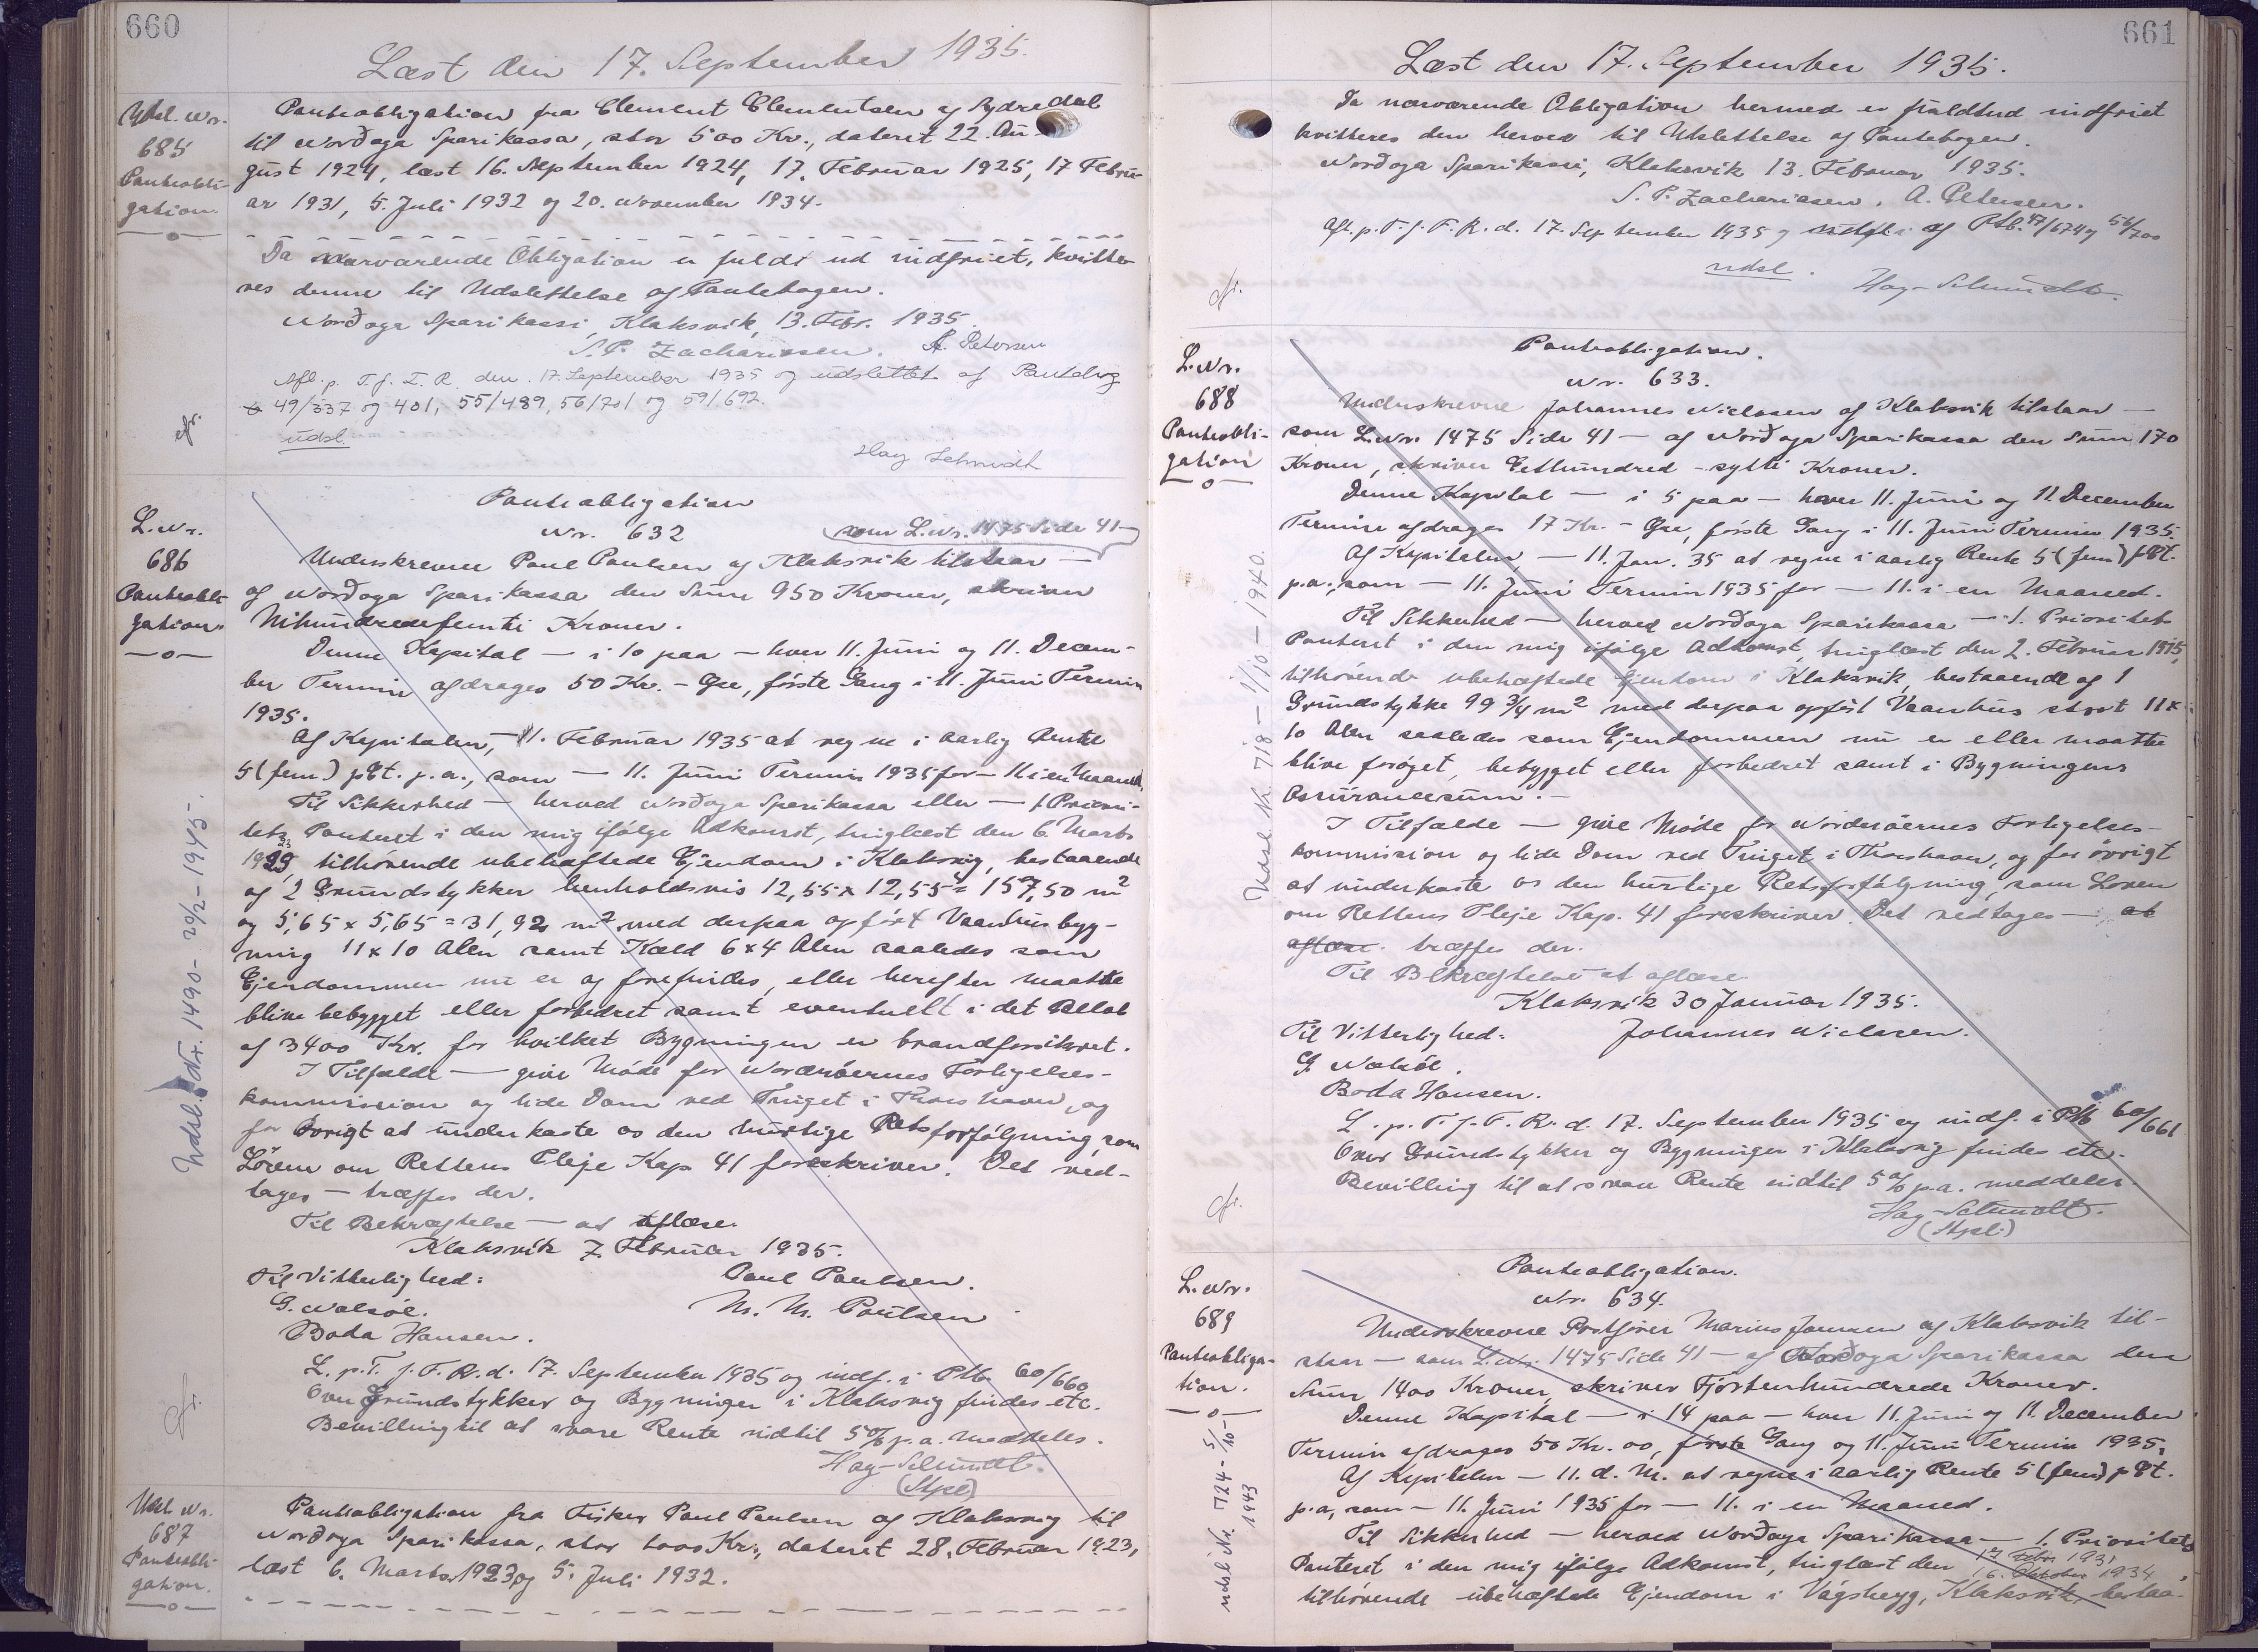 660
Læst den 17. September 1935.
Udsl. Nr.
685
Panteobli-
gation.
Panteobligation fra Clement Clementsen af Sydredal
til Norðoya Sparikassa, stor 500 Kr., dateret 22. Au-
gust 1924, læst 16. September 1924, 17. Februar 1925, 17 Febru-
ar 1931, 5. Juli 1932 og 20. November 1934.
Da nærværende Obligation er fuldt ud indfriet, kvitte-
res denne til Udslettelse af Pantebogen.
Norðoya Sparikassi, Klaksvik, 13. Febr. 1935
S. P. Zachariasen. A. Petersen
Afl. p. T. f. F. R. den 17. September 1935 og udslettet af Pantebog
49/337 og 401, 55/489, 56/701 og 59/692.
udsl.
Hay Schmidt
cfr.
L. Nr.
686
Panteobli-
gation.
Panteobligation
Nr. 632
(som L. Nr. 1475 Side 41-
Underskrevne Paul Paulsen af Klaksvik tilstaar —
af Norðoya Sparikassa den Sum 950 Kroner, skriver
Nihundredefemti Kroner.
Denne Kapital — i 10 paa — hver 11. Juni og 11. Decem-
ber Termin afdrages 50 Kr. - Øre, første Gang i 11. Juni Termin
1935.
Af Kapitalen, — 11. Februar 1935 at regne i aarlig Rente
5 (fem) pCt. p. a., som — 11. Juni Termin 1935 for — 11 i en Maaned.
Til Sikkerhed — herved Norðoya Sparikassa eller — 1. Priori-
tets Panteret i den mig ifølge Adkomst, tinglæst den 6. Marts
1923, tilhørende ubehæftede Ejendom i Klaksvig, bestaaende
af 2 Grundstykker henholdsvis 12,55 x 12,55 = 157,50 m²
og 5,65 x 5,65 = 31,92 m² med derpaa opført Vaanhusbyg-
ning 11 x 10 Alen samt Kæld 6 x 4 Alen saaledes som
Ejendommen nu er og forefindes, eller herefter maatte
blive bebygget eller forbedret samt eventuelt i det Beløb
af 3400 Kr. for hvilket Bygningen er brandforsikret.
I Tilfælde — give Møde for Norderøernes Forligelses-
kommission og lide Dom ved Tinget i Thorshavn, og
for Øvrigt at underkaste os den hurtige Retsforfølgning, som
Loven om Rettens Pleje Kap 41 foreskriver. Det ved-
tages — træffes der.
Til Bekræftelse — at aflæse.
Klaksvik 7. Februar 1935.
Til Vitterlighed:
Paul Paulsen.
G. Nolsøe.
M. M. Poulsen
Boda Hansen.
L. p. T. f. F. R. d. 17. September 1935 og indf. i Ptb. 60/660
Over Grundstykker og Bygninger i Klaksvig findes etc.
Bevilling til at svare Rente indtil 5 % p. a. meddeles.
Hay-Schmidt.
(Stpl)
cfr.
Udsl. Nr. 1490 - 20/2 - 1945.
Udsl. Nr.
687
Panteobli-
gation.
Panteobligation fra Fisker Paul Paulsen af Klaksvig til
Norðoya Sparikassa, stor 1000 Kr., dateret 28. Februar 1923,
læst 6. Marts 1923 og 5. Juli 1932.
661
Læst den 17. September 1935.
Da nærværende Obligation hermed er fuldtud indfriet
kvitteres den herved til Udslettelse af Pantebogen.
Norðoya Sparikassi, Klaksvik 13. Februar 1935.
S. P. Zachariasen. A. Petersen.
Afl. p. T. f. F. R. d. 17. September 1935 og af Ptb. 47/674 og 56/700
udsl.
Hay-Schmidt.
cfr.
L. Nr.
688
Panteobli-
gation
Panteobligation.
Nr. 633.
Underskrevne Johannes Niclasen af Klaksvik tilstaar —
som L. Nr. 1475 Side 41 — af Norðoya Sparikassa den Sum 170
Kroner, skriver Ethundred-sytti Kroner.
Denne Kapital — i 5 paa — hver 11. Juni og 11 December
Termin afdrages 17 Kr. - Øre, første Gang i 11. Juni Termin 1935.
Af Kapitalen, — 11. Jan. 35 at regne i aarlig Rente 5 (fem) pCt.
p. a., som — 11. Juni Termin 1935 for — 11. i en Maaned.
Til Sikkerhed — herved Norðoya Sparikassa — 1. Prioritets
Panteret i den mig ifølge Adkomst, tinglæst den 2. Februar 1915,
tilhørende ubehæftede Ejendom i Klaksvik, bestaaende af 1
Grundstykke 99 3/4 m² med derpaa opført Vaanhus stort 11 x
10 Alen saaledes som Ejendommen nu er eller maatte
blive forøget, bebygget eller forbedret samt i Bygningens
Assurancesum. —
I Tilfælde — give Møde for Norderøernes Forligelses-
kommission og lide Dom ved Tinget i Thorshavn, og for øvrigt
at underkaste os den hurtige Retsforfølgning, som Loven
om Rettens Pleje Kap. 41 foreskriver. Det vedtages — at
aflæse. træffes der.
Til Bekræftelse at aflæse.
Klaksvik 30 Januar 1935.
Til Vitterlighed:
Johannes Niclasen.
G. Nolsøe.
Boda Hansen.
L. p. T. f. F. R. d. 17. September 1935 og indf. i Ptb 60/661
Over Grundstykker og Bygninger i Klaksvig findes etc.
Bevilling til at svare Rente indtil 5 % p. a. meddeles.
Hay-Schmidt.
(Stpl.)
cfr.
Udsl. Nr. 718 - 1/10 - 1940.
L. Nr.
689
Panteobliga-
tion.
Panteobligation.
Nr. 634.
Underskrevne Postfører Marius Joensen af Klaksvik til-
staar — som L. Nr. 1475 Side 41 — af Norðoya Sparikassa den
Sum 1400 Kroner, skriver Fjortenhundrede Kroner.
Denne Kapital — i 14 paa — hver 11. Juni og 11. December
Termin afdrages 50 Kr. 00, første Gang og 11. Juni Termin 1935.
Af Kapitalen — 11. d. M. at regne i aarlig Rente 5 (fem) pCt.
p. a., som — 11. Juni 1935 for — 11. i en Maaned.
Til Sikkerhed — herved Norðoya Sparikassa — 1. Prioritets
Panteret i den mig ifølge Adkomst, tinglæst den 17 Febr. 1931
16. Oktober 1934,
tilhørende ubehæftede Ejendom i Vágsbygg, Klaksvik, bestaa-
udsl Nr. 724 - 5/10 - 1943